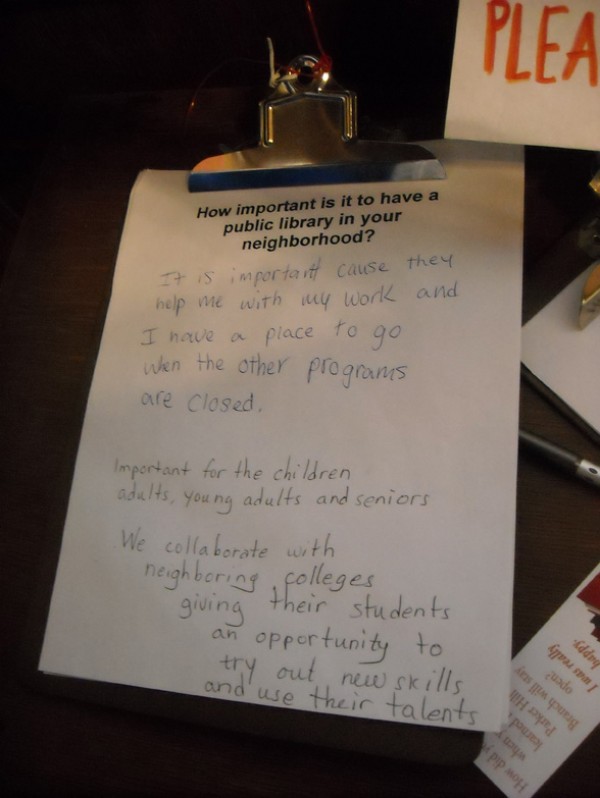 PLEA
How important is it to have a
public library in your
neighborhood?
It is important cause they
help me with my work and
I have a place to go
wen the other programs
are closed.
Important for the children
adults, young adults and seniors
We collaborate with
neighboring colleges
giving their students
an opportunity to
try out new skills
and use their talents
How did
when
learned
Parker Hill
Branch will stay
open?
I was really
happy.